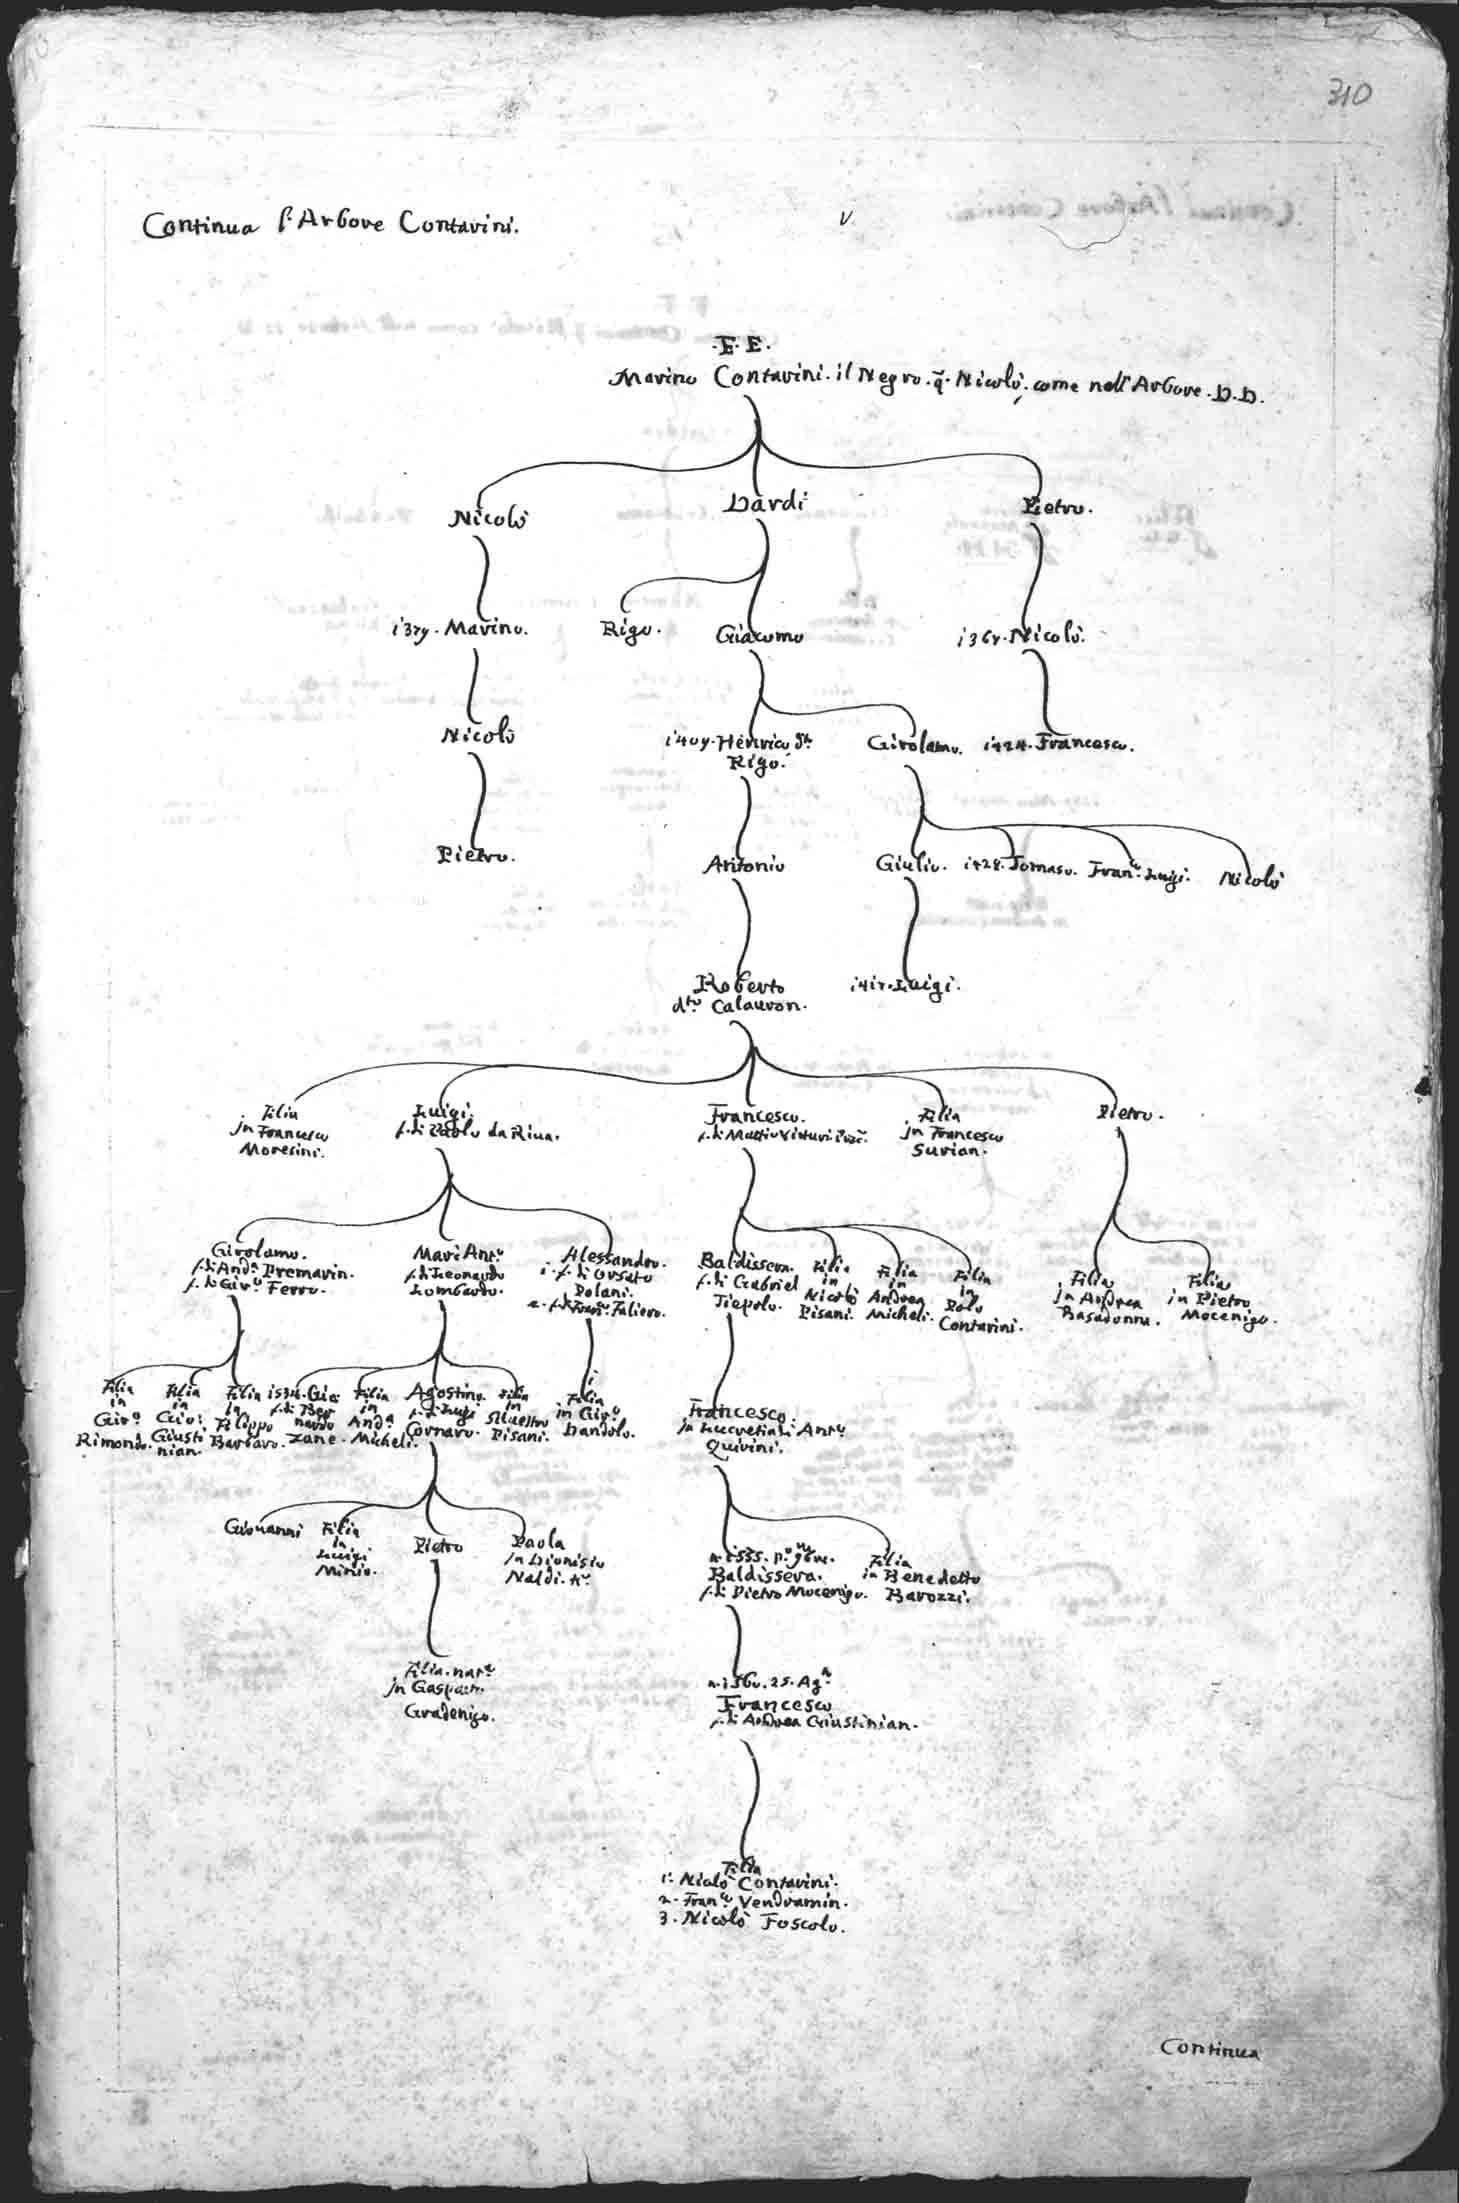 310
Continua l'Arbore Contarini.
V.
.E.E.
Marino Contarini. il Negro. q̃. Nicolò, come nell'Arbore. D.D.
Nicolò
Dardi
Pietro.
1379. Marino.
Rigo.
Giacomo
1365. Nicolò.
Nicolò
1409. Henrico dto
Rigo.
Girolamo.
1424. Francesco.
Pietro.
Antonio
Giulio.
1428. Tomaso.
Franco. Luigi.
Nicolò
Roberto
dto. Calauron.
Luigi.
Filia
in Francesco
Moresini.
Luigi.
f. di Paolo da Riua.
Francesco.
f. di Mattio Vitturi
Filia
in Francesco
Surian.
Pietro.
Girolamo.
f. di Anda. Premarin.
f. di Giro. Ferro.
Mari Anto.
f. di Leonardo
Lombardo.
Alessandro.
1. f. di Orsato
Polani.
2. f. di Franco. Faliero.
Baldissera.
f. di Gabriel
Tiepolo.
Filia
in
Nicolò
Pisani.
Filia
in
Andrea
Micheli.
Filia
in
Polo
Contarini.
Filia
in Andrea
Basadonna.
Filia
in Pietro
Mocenigo.
Filia
in
Giro.
Rimondo.
Filia
in
Gio:
Giusti
nian.
Filia
in
Filippo
Barbaro.
1534. Gio:
f. di Ber
nardo
Zane.
Filia
in
Anda.
Micheli.
Agostino.
f. di Luigi
Cornaro.
Filia
in
Siluestro
Pisani.
1
Filia
in Giro.
Dandolo.
Francesco.
in Lucretia di Anto.
Quirini.
Giouanni
Filia
in
Luigi
Minio.
Pietro
Paola
in Dionisio
Naldi. Kr.
n. 1535. po. 9bre.
Baldissera.
f. di Pietro Mocenigo.
Filia
in Benedetto
Barozzi.
Filia. nate
in Gasparo.
Gradenigo.
n. 1560. 25. Ago.
Francesco
f. di Andrea Giustinian.
Filia
1. Nicolò Contarini.
2. Franco. Vendramin.
3. Nicolò Foscolo.
Continua